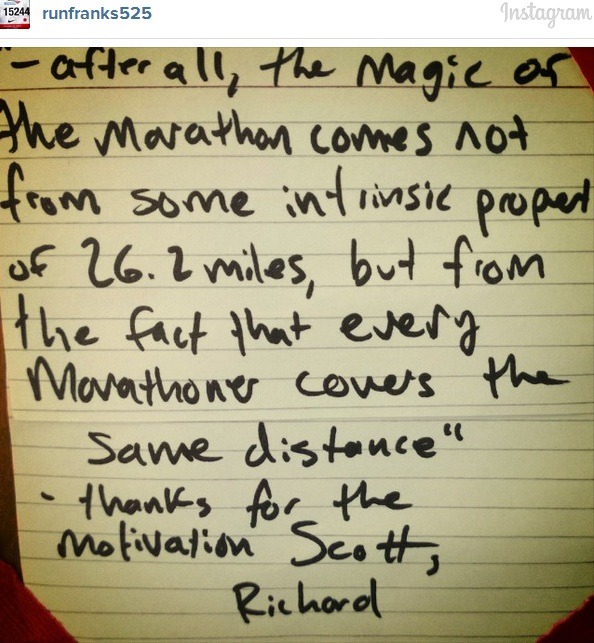 15244
runfranks525
Instagram
"- after all, the Magic of
the Marathon comes not
from some intrinsic propert
of 26.2 miles, but from
the fact that every
Marathoner covers the
same distance"
- thanks for the
Motivation Scott,
Richard